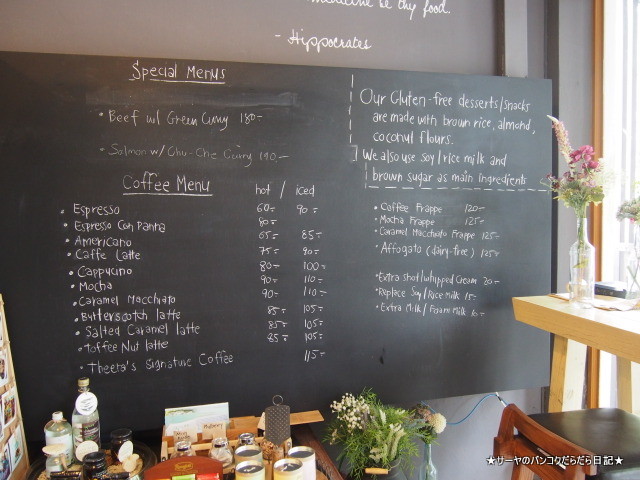 medicine be thy food.
- Hippocrates
Special Menus
• Beef w/ Green Curry 180-
• Salmon w/ Chu-Che Curry 190-
Coffee Menu hot / iced
• Espresso 60- 90-
• Espresso Con Panna 80-
• Americano 65- 85-
• Caffe Latte 75- 90-
• Cappucino 80- 100-
• Mocha 90- 110-
• Caramel Macchiato 90- 110-
• Butterscotch latte 85- 105-
• Salted Caramel latte 85- 105-
• Toffee Nut latte 85- 105-
• Theera's Signature Coffee 115-
Our Gluten-free desserts/snacks
are made with brown rice, almond,
coconut flours.
We also use soy/rice milk and
brown sugar as main ingredients
• Coffee Frappe 120-
• Mocha Frappe 125-
• Caramel Macchiato Frappe 125-
• Affogato (dairy-free) 125-
• Extra shot/whipped Cream 20-
• Replace Soy/Rice Milk 15-
• Extra Milk/Foam Milk 10-
★サーヤのバンコクだらだら日記★